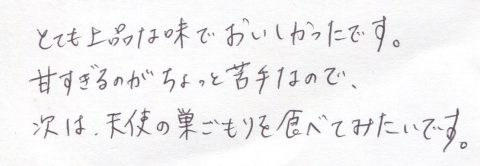 とても上品な味でおいしかったです。
甘すぎるのがちょっと苦手なので、
次は、天使の巣ごもりを食べてみたいです。